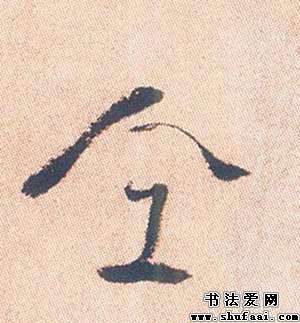 仝
书法爱网
www.shufaai.com